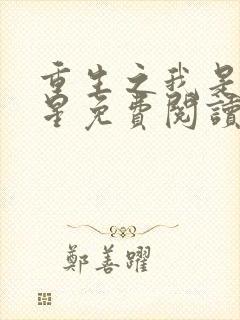 重生之我是
星免費閱讀
鄭善躍